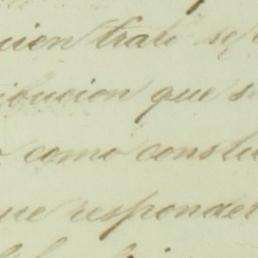 uien trato se
ibucion que s
o como constu
ue responder